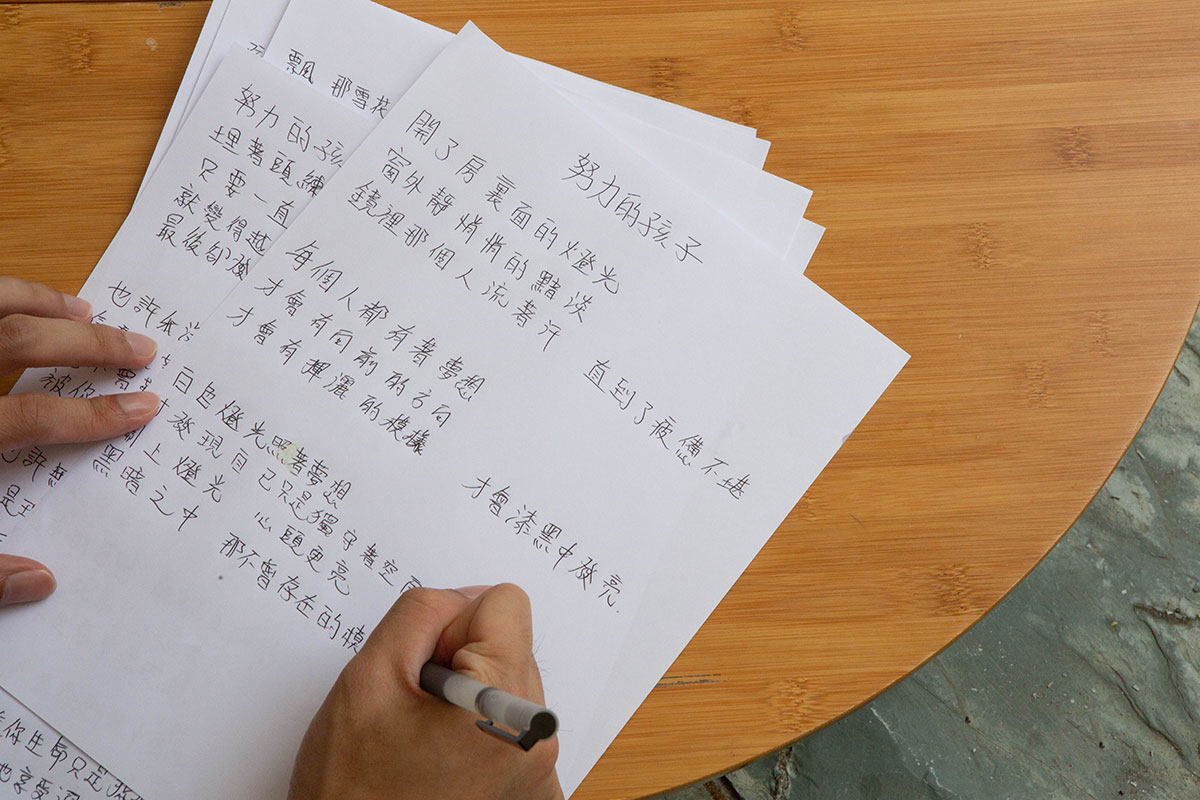 飄 那雪花
努力的孩
埋著頭練
只要一直
就變得越
最後卻發
也許
被你
也許
努力的孩子
開了房裏面的燈光
窗外靜悄悄的黯淡
鏡裡那個人流著汗
直到了疲憊不堪
每個人都有著夢想
才會有向前的方向
才會有揮灑的模樣
才會漆黑中發亮.
白色燈光照著夢想
才發現自己只是獨守著空
關上燈光 心頭更亮
黑暗之中 那不曾存在的模
你生命只是
也享受